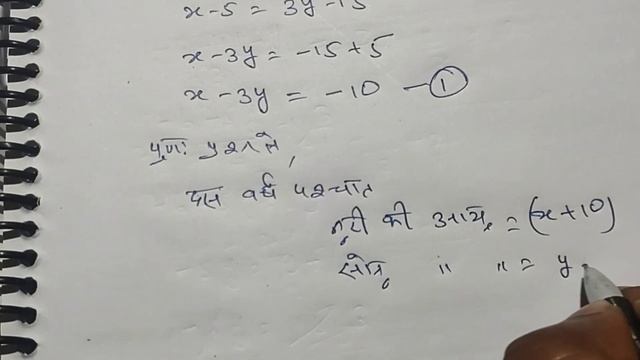 x-5 = 3y-15
x-3y = -15+5
x-3y = -10 -①
पुनः प्रश्न से,
दस वर्ष पश्चात
नूरी की आयु = (x+10)
सोनू " " = y